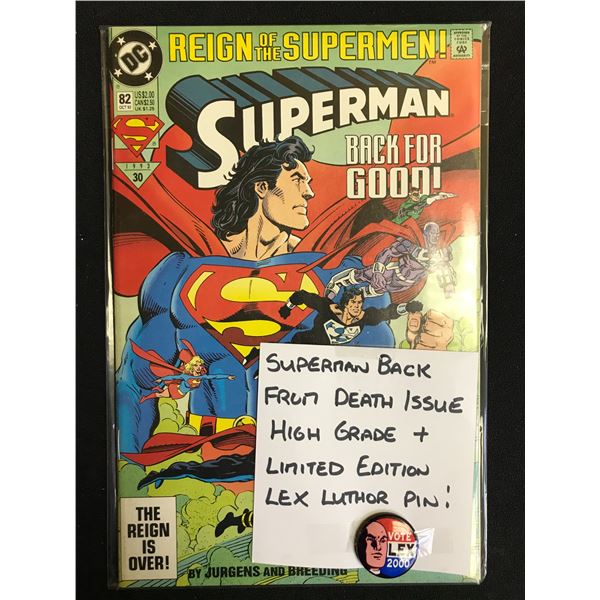 REIGN OF THE SUPERMEN!
DC
82
OCT 93
US $2.00
CAN $2.50
UK £1.25
APPROVED BY THE COMICS CODE AUTHORITY
SUPERMAN
TM
S
1993
30
BACK FOR GOOD!
SUPERMAN BACK
FROM DEATH ISSUE
HIGH GRADE +
LIMITED EDITION
LEX LUTHOR PIN!
VOTE
LEX
2000
THE
REIGN
IS
OVER!
BY JURGENS AND BREEDING